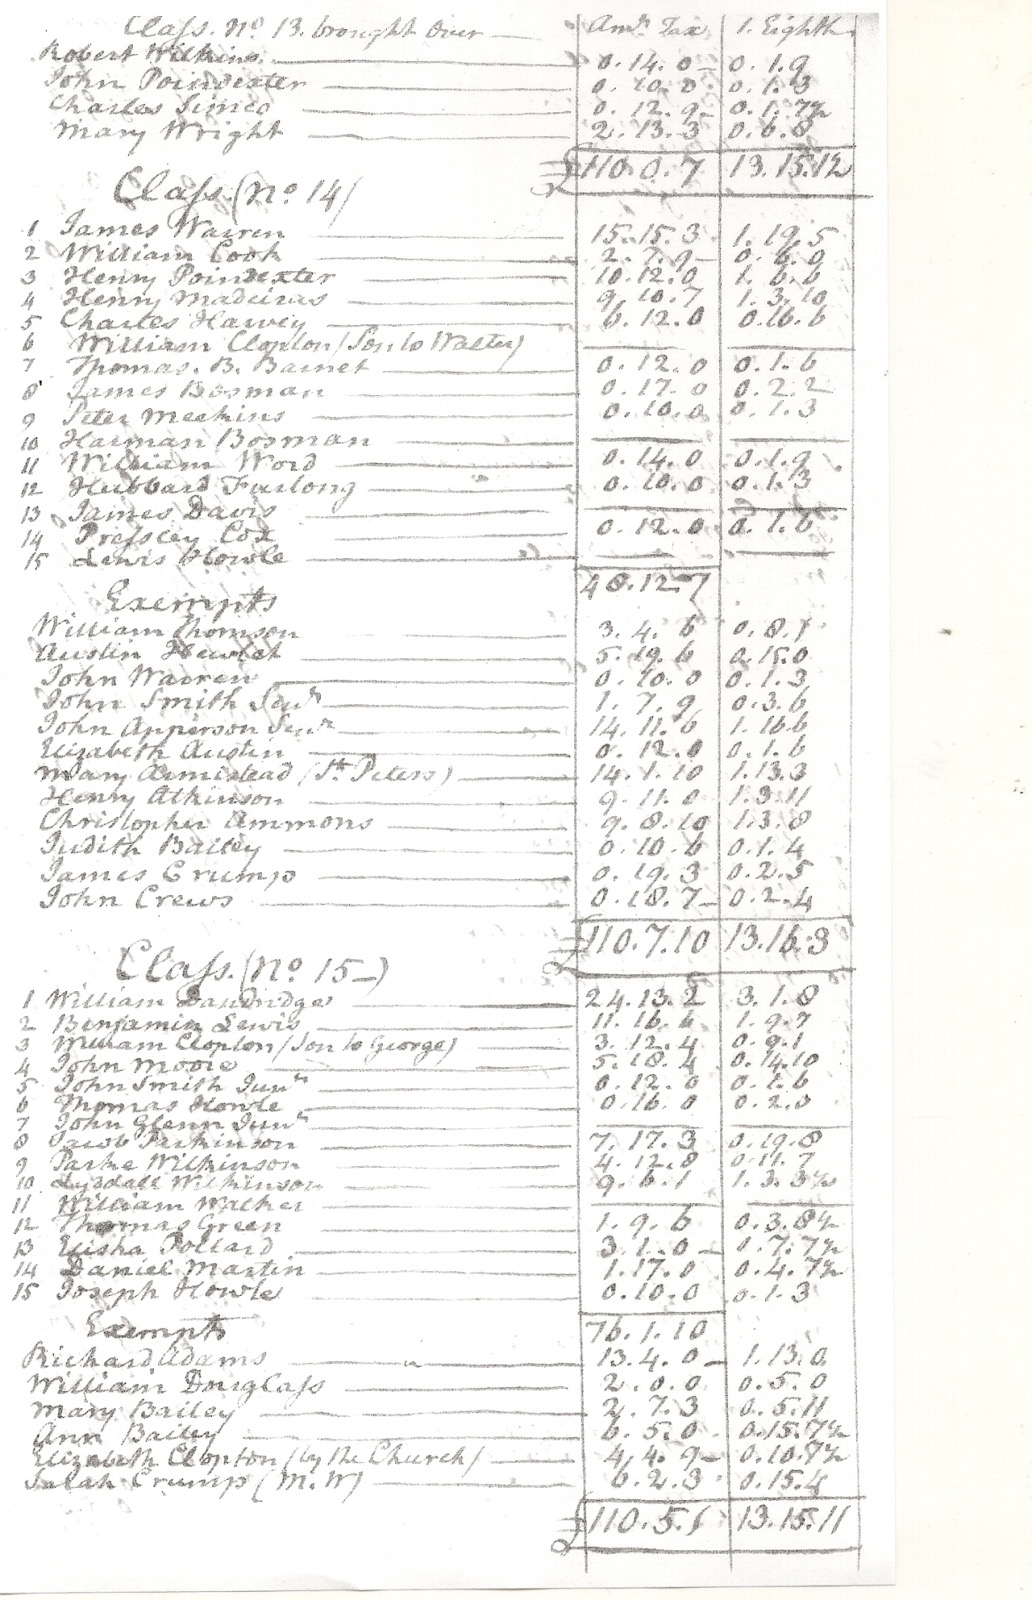 Class. No. 13. brought over Amt. Tax 1. Eighth
Robert Wilkins. 0.14.0 0.1.9
John Poindexter 0.10.0 0.1.3
Charles Simco 0.12.9 0.1.7½
Mary Wright 2.13.3 0.6.8
£110.0.7 13.15.1½
Class. (No. 14)
1 James Warren 15.15.3 1.19.5
2 William Cook 2.7.9 0.6.0
3 Henry Poindexter 10.12.0 1.6.6
4 Henry Madeiras 9.10.7 1.3.10
5 Charles Harvey 6.12.0 0.16.6
6 William Clopton (Son to Walter)
7 Thomas. B. Barnet 0.12.0 0.1.6
8 James Bosman 0.17.0 0.2.2
9 Peter Meekins 0.10.0 0.1.3
10 Harman Bosman
11 William Word 0.14.0 0.1.9
12 Hubbard Furlong 0.10.0 0.1.3
13 James Davis
14 Pressley Cox 0.12.0 0.1.6
15 Lewis Howle
48.12.7
Exempts
William Thomson 3.4.6 0.8.1
Austin Hewlet 5.19.6 0.15.0
John Warren 0.10.0 0.1.3
John Smith Senr 1.7.9 0.3.6
John Apperson Senr 14.11.6 1.16.6
Elizabeth Austin 0.12.0 0.1.6
Mary Armistead (St. Peters) 14.1.10 1.13.3
Henry Atkinson 9.11.0 1.3.11
Christopher Ammons 9.8.10 1.3.8
Judith Bailey 0.10.6 0.1.4
James Crump 0.19.3 0.2.5
John Crews 0.18.7 0.2.4
£110.7.10 13.16.3
Class. (No. 15)
1 William Dandridge 24.13.2 3.1.8
2 Benjamin Lewis 11.16.6 1.9.7
3 William Clopton (Son to George) 3.12.4 0.9.1
4 John Moore 5.18.4 0.14.10
5 John Smith Junr 0.12.0 0.1.6
6 Thomas Howle 0.16.0 0.2.0
7 John Glenn Junr
8 Jacob Parkinson 7.17.3 0.19.8
9 Parke Wilkinson 4.12.8 0.11.7
10 Lyddall Wilkinson 9.6.1 1.3.3½
11 William Walker
12 Thomas Green 1.9.6 0.3.8½
13 Elisha Pollard 3.1.0 0.7.7½
14 Daniel Martin 1.17.0 0.4.7½
15 Joseph Howle 0.10.0 0.1.3
76.1.10
Exempts
Richard Adams 13.4.0 1.13.0
William Douglass 2.0.0 0.5.0
Mary Bailey 2.7.3 0.5.11
Ann Bailey 6.5.0 0.15.7½
Elizabeth Clopton (by the Church) 4.4.9 0.10.7½
Sarah Crump (M.W) 6.2.3 0.15.4
£110.5.1 13.15.11